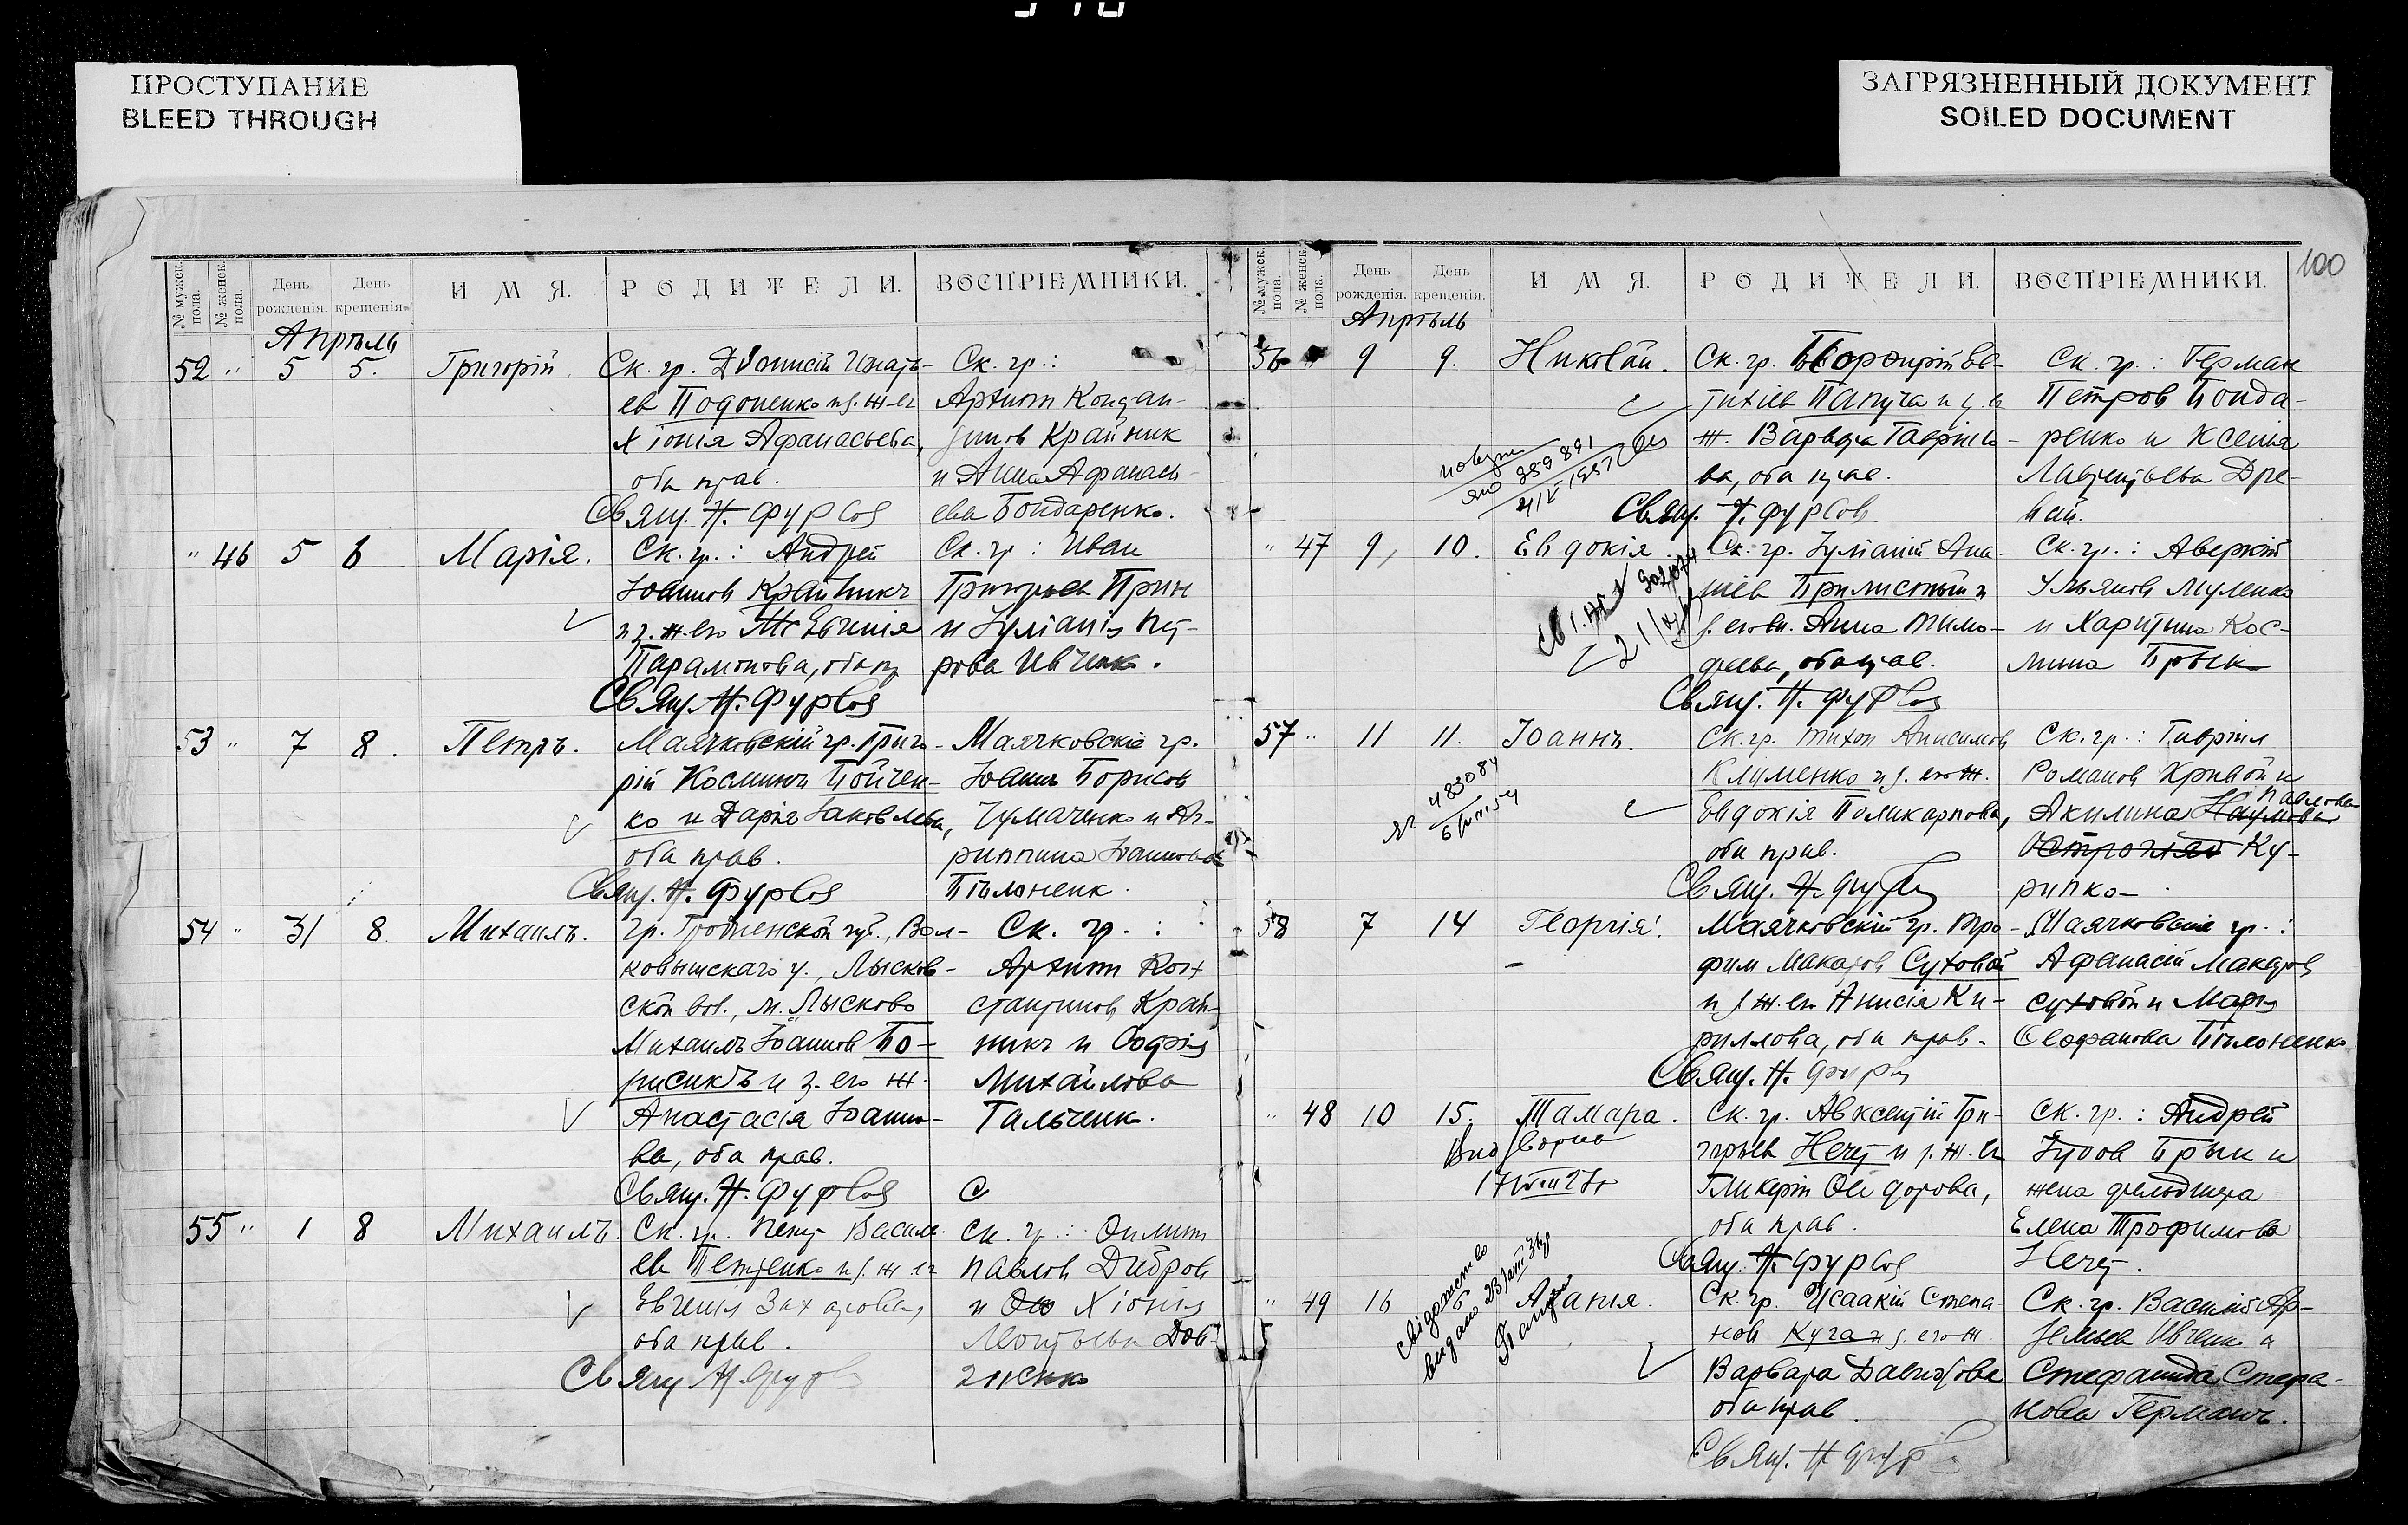 ПРОСТУПАНИЕ
BLEED THROUGH
ЗАГРЯЗНЕННЫЙ ДОКУМЕНТ
SOILED DOCUMENT
№ мужск. пола.
№ женск. пола.
День рожденія.
День крещенія.
ИМЯ.
РОДИТЕЛИ.
ВОСПРІЕМНИКИ.
Апрѣль
52 " 5 5. Григорій
Ск. гр. Діонисій Игнатьев
ев Подопенко и з. ж. ег
Хіонія Афанасьева,
оба прав.
Свящ. Н. Фурсов
Ск. гр.:
Артит Кондан-
Крайник
и Анна Афанась-
ева Бондаренко.
" 46 5 6 Марія.
Ск. гр.: Андрей
Іоаннов Крайникъ
и з. ж. его Евгенія
Парамонова, оба пр
Свящ. Н. Фурсов
Ск. гр: Иван
Григорьев Прин
и Іуліанія Пет-
рова Ивченк.
53 " 7 8. Петръ.
Маячковскій гр. Григо-
рій Косминъ Бойчен-
ко и Дарія Іаковлева,
оба прав.
Свящ. Н. Фурсов
Маячковскіе гр.
Іоанн Борисов
Чумаченко и Аг-
риппина Іоаннова
Бѣлоненк.
54 " 31 8. Михаилъ.
гр. Гродненской губ., Вол-
ковышскаго у., Лысков-
ской вол., м. Лысково
Михаилъ Іоаннов Бо-
рисикъ и з. его ж.
Анастасія Іоанно-
ва, оба прав.
Свящ. Н. Фурсов
Ск. гр.:
Артит Кон-
стантинов Край-
никъ и Софія
Михайлова
Гальченк.
55 " 1 8 Михаилъ.
Ск. гр. Петр Василь-
ев Петренко и з. ж. ег
Евгенія Захарова,
оба прав.
Свящ. Н. Фурсов
Ск. гр.: Филипп
Павлов Дибров
и Хіонія
100
№ мужск. пола.
№ женск. пола.
День рожденія.
День крещенія.
ИМЯ.
РОДИТЕЛИ.
ВОСПРІЕМНИКИ.
Апрѣль
56 " 9 9. Николай.
Ск. гр. Порфирій Ев-
тихіев Папуча и з. ег
ж. Варвара Гаврило-
ва, оба прав.
Свящ. Н. Фурсов
Ск. гр.: Герман
Петров Бонда-
ренко и Ксенія
Лаврентьева Дре-
вай.
" 47 9 10. Евдокія.
Ск. гр. Іуліаній Ана-
ніев Брилистый и
Анна Тимо-
феева, оба прав.
Свящ. Н. Фурсов
Ск. гр.: Аверкій
Ульянов Муленко
и Харитина Кос-
мина Брык
57 " 11 11. Іоаннъ.
483084
Ск. гр. Тихон Анисимов
Клименко и з. его ж.
Евдокія Поликарпова,
оба прав.
Свящ. Н. Фурсов
Ск. гр.: Гавріил
Романов Кривой и
Акилина Наумова Павлова
Ку-
рипко
58 7 14 Георгія.
Маячковскій гр. Тро-
фим Макаров Суховой
и з. ж. ег Анисія Ки-
риллова, оба прав.
Свящ. Н. Фурсов
Маячковскіе гр.:
Афанасій Макаров
Суховой и Марія
Феофанова Бѣлоненко
" 48 10 15. Тамара.
Ск. гр. Авксентій Гри-
горьев Нечет и з. ж. ег
Гликерія Феодорова,
оба прав.
Свящ. Н. Фурсов
Ск. гр.: Андрей
Брык и
жена фельдшера
Елена Трофимова
Нечет.
" 49 16 Агапія.
Ск. гр. Исаакій Степа-
нов Куга и з. его ж.
Варвара Давидова
оба прав.
Свящ. Н. Фурсов
Ск. гр. Василій Ар-
темьев Ивченко и
Стефанида Степа-
нова Германъ.